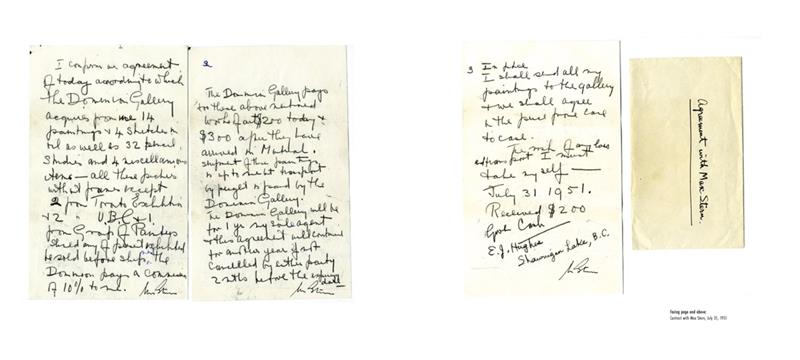 I confirm an agreement
of today according to which
the Dominion Gallery
acquires from me 14
paintings & 4 sketches in
oil as well as 32 pencil
studies and 4 miscellaneous
items — all these pictures
without frames except
2 from Toronto Exhibition
& 2 " U.B.C & 1
from Group of Painters
Should any of
be sold before the
Dominion pays a
of 10% to me.
2
The Dominion Gallery pays
for these above mentioned
works of art $200 today &
$300 after they have
arrived in Montreal.
shipment of the paintings
is up to me but transport
by freight is paid by the
Dominion Gallery.
The Dominion Gallery will be
for 1 yr my sole agent
& this agreement will continue
for another year if not
cancelled by either party
2 mths before the expiry
date
3 In
I shall send all my
paintings to the gallery
& we shall agree
the price from case
to case.
The risk of any loss
transport I must
take myself —
July 31 1951.
Received $200
Cash
E.J. Hughes
Shawnigan Lake, B.C.
Agreement with Max Stern.
Facing page and above:
Contract with Max Stern, July 31, 1951